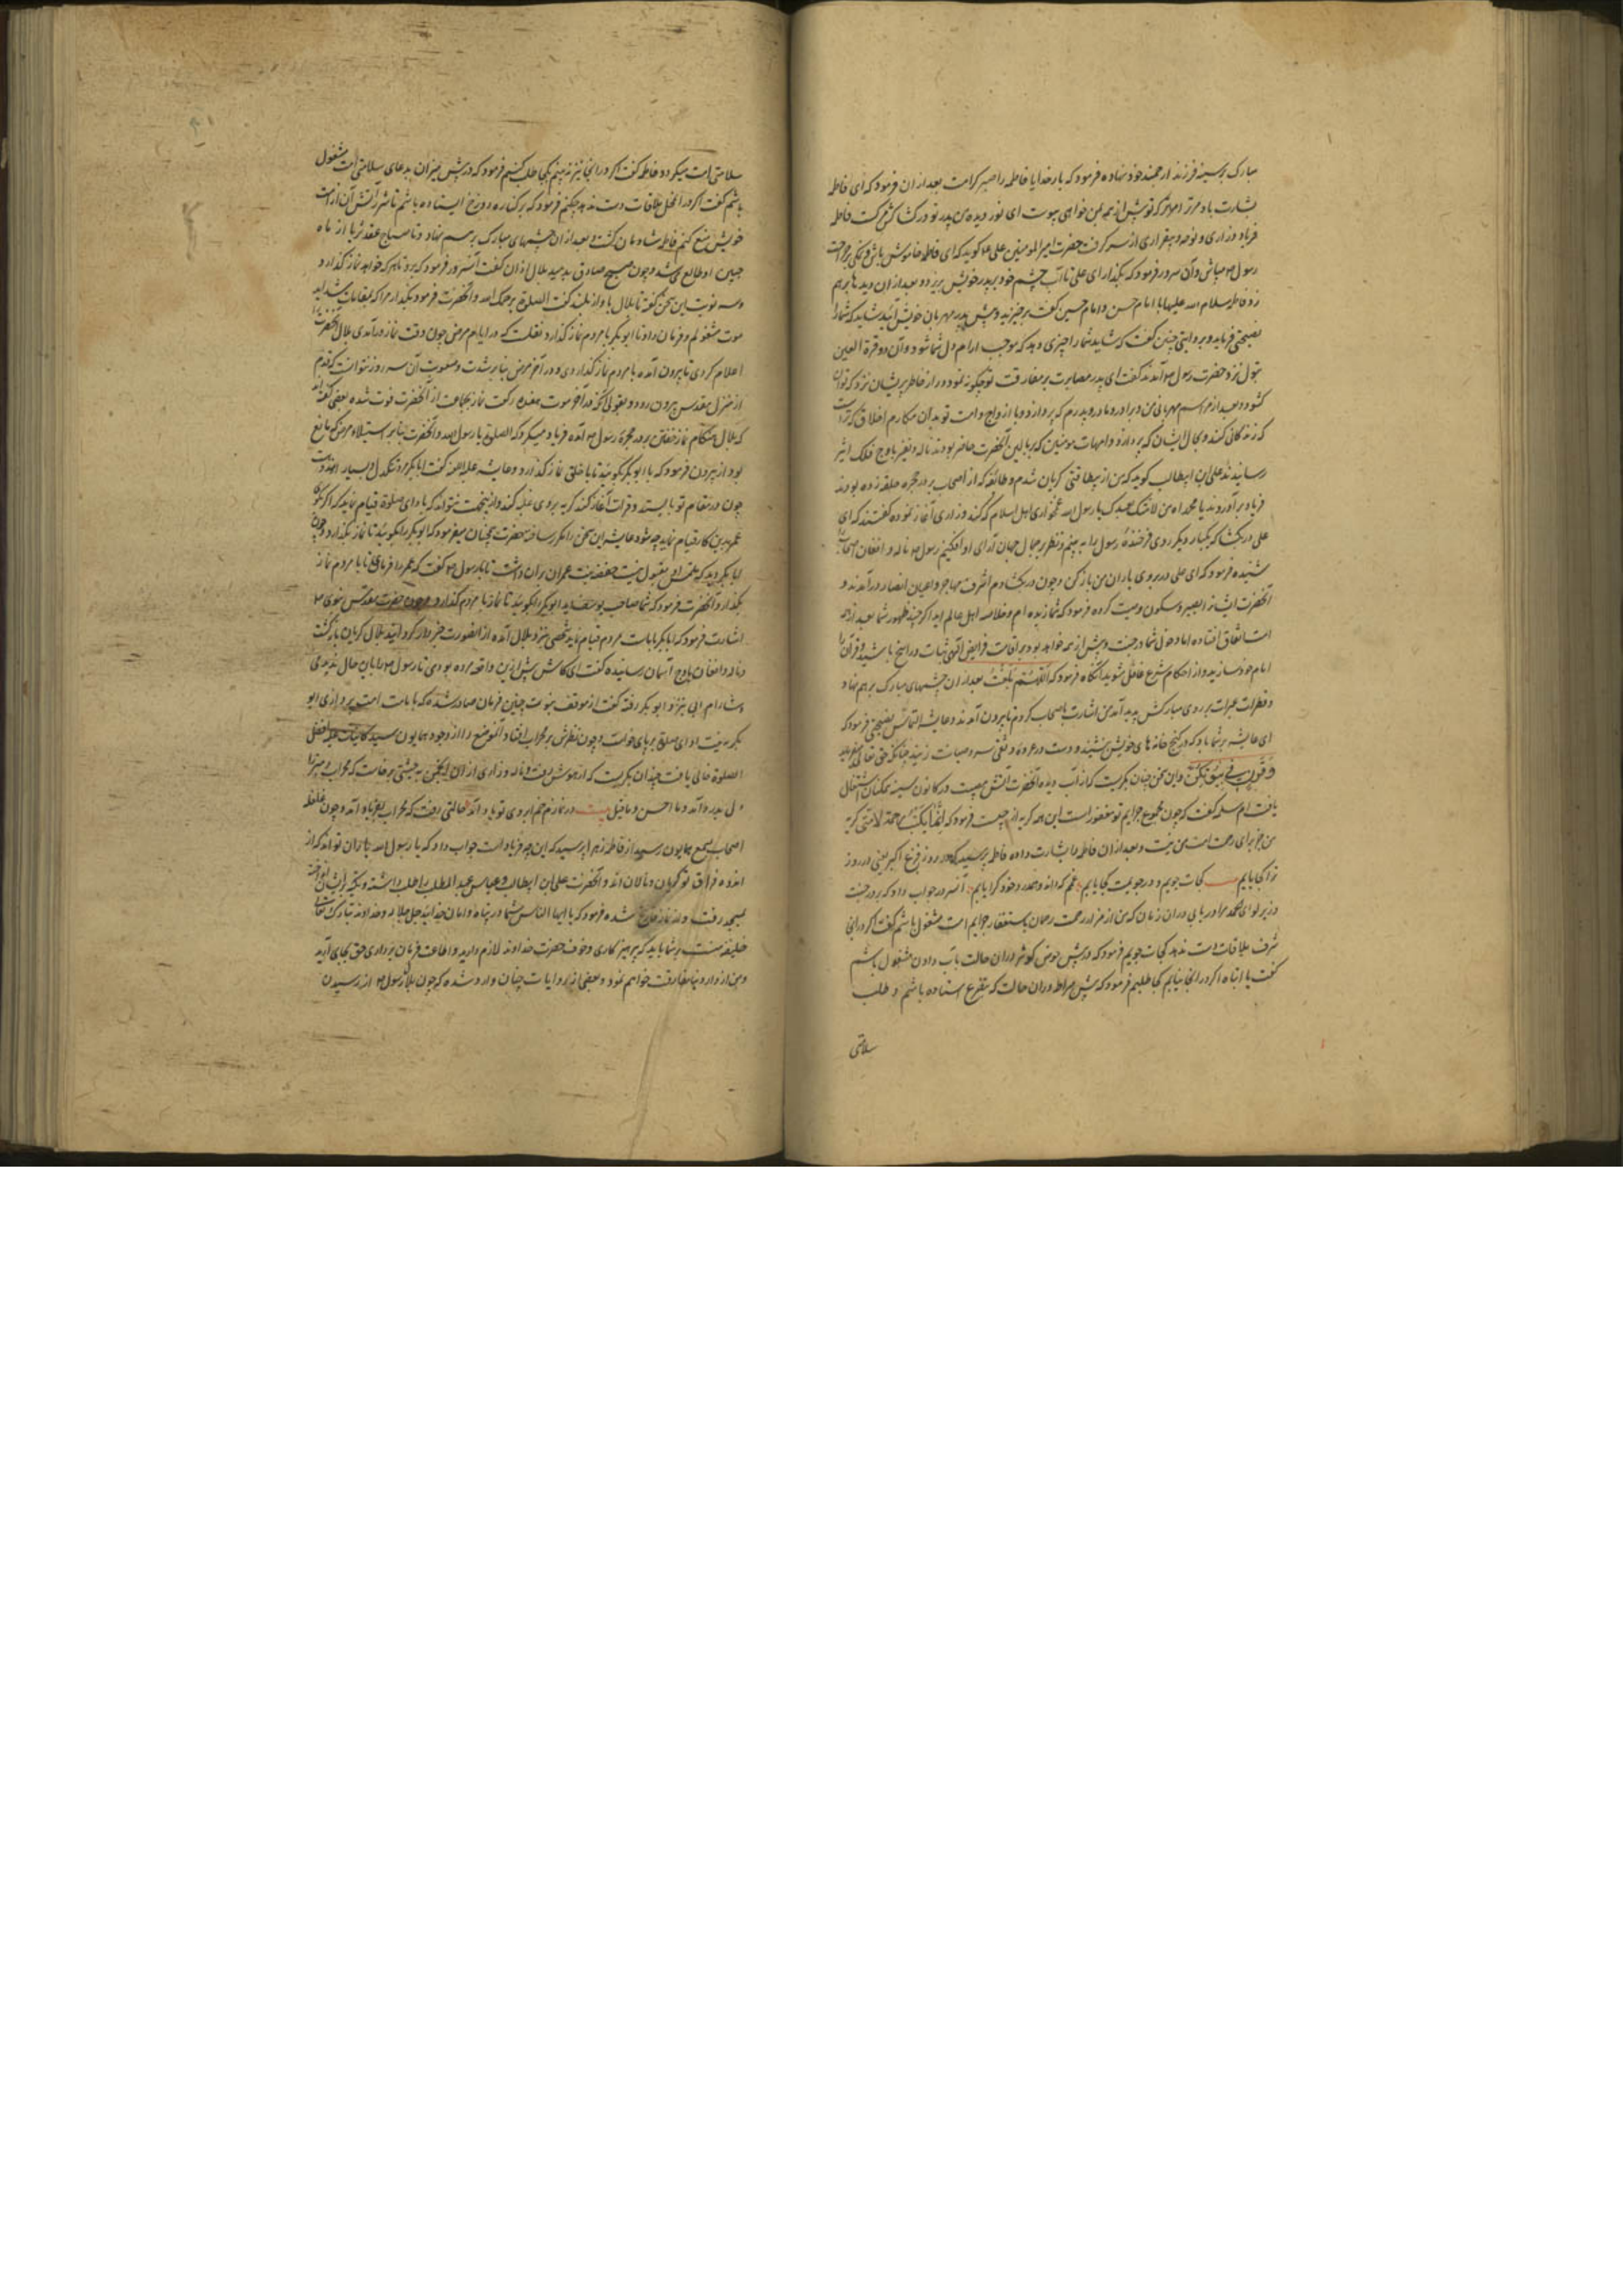 مبارک بر سینه فرزند ارجمند خود نهاده فرمود که بار خدایا فاطمه را صبر کرامت بعد ازان فرمود که ای فاطمه
بشارت باد مر ترا که تو پیش از همه بمن خواهی پیوست ای نور دیده من پدر تو در کشاکش مرگ است فاطمه
فریاد و زاری و نوحه و بیقراری از سر گرفت حضرت امیرالمومنین علی گوید که ای فاطمه خاموش باش و نمک بر جراحت
رسول مپاش و آن سرور فرمود که بگذار ای علی تا آب چشم خود بر پدر خویش ریزد و بعد ازان دیدها برهم
زد فاطمه سلام الله علیها با امام حسن و امام حسین گفت برخیزید و پیش پدر مهربان خویش آئید شاید که شما را
نصیحتی فرماید و بروایتی چنین گفت که شاید شما را چیزی دهد که موجب ارام دل شما شود و آن دو قرة العین
بتول نزد حضرت رسول آمدند گفت ای پدر مصابرت بر مفارقت تو چگونه نمود و راز خاطر پریشان نزد که توان
گشود و بعد از مراسم مهربانی من و برادر و مادر و پدرم که پردازد و با ازواج و امت تو بدان مکارم اخلاق که تراست
که زندگانی کند و بحال ایشان که پردازد و امهات مومنین که ببالین آنحضرت حاضر بودند ناله و نفیر باوج فلک اثیر
رسانیدند علی ابن ابیطالب گوید که من از بیطاقتی گریان شدم و طائفه که از اصحاب بر در حجره حلقه زده بودند
فریاد برآوردند یا محمداه من لامتک بعدک یا رسول الله غمخواری اهل اسلام که کند و زاری آغاز نموده گفتند که ای
علی در بگشا که یکبار دیگر روی فرخنده رسول را به بینم و نظر بر جمال جهان آرای او افکنیم رسول ناله و افغان اصحاب را
شنیده فرمود که ای علی در بروی یاران من باز کن و چون در بگشادم اشراف مهاجر و اعیان انصار درآمدند و
آنحضرت ایشانرا بصبر و سکون وصیت کرده فرمود که شما زبده امم و خلاصه اهل عالم اید اگر چه ظهور شما بعد از همه
است اتفاق افتاده اما دخول شما در جنت پیش از همه خواهد بود بر اقامت فرایض الهی ثابت و راسخ باشید و قرآن را
امام خود سازید و از احکام شرع غافل مشوید انگاه فرمود که اللهم بلغت بعد ازان چشمهای مبارک برهم نهاد
و قطرات عبرات بر روی مبارکش پدید آمد من اشارت باصحاب کردم تا بیرون آمدند و عایشه التماس نصیحتی فرمود که
ای عایشه بر شما باد که در کنج خانه های خویش بنشیند و دست در عروه وثقی ستر و صیانت زنید چنانکه حق تعالی میفرماید
و قرن فی بیوتکن و این سخن چنان بگریست که از آب دیده آنحضرت آتش مصیبت در کانون سینه همکنان اشتعال
یافت ام سلمه گفت که چون مجموع جرایم تو مغفور است این همه گریه از چیست فرمود که انما بکیت رحمة لامتی گریه
من جز برای رحمت امت من نیست و بعد ازان فاطمه را بشارت داده فاطمه پرسید که در روز فزع اکبر یعنی در روز
ترا کجا یابم کجات جویم و در جویمت کجا یابم غمم که داند و همدرد خود کرا یابم آنسرور جواب داد که بر در جنت
در زیر لوای محمد مرا دریابی دران زمان که من از حضرت رحمان باستغفار جرایم امت مشغول باشم گفت اگر در انجا
شرف ملاقات دست ندهد کجات جویم فرمود که در پیش حوض کوثر دران حالت باب دادن مشغول باشم
گفت یا ابتاه اگر در انجا نیابم کجا طلبم فرمود که پیش صراط دران حالت که بتضرع استاده باشم و طلب
سلامتی
سلامتی امت میکرد و فاطمه گفت اگر در انجا نیز نه بینم بکجا طلب کنیم فرمود که در پیش میزان بدعای سلامتی امت مشغول
باشم گفت اگر در آن محل ملاقات دست ندهد چکنم فرمود که بر کناره دوزخ ایستاده باشم تا شرر آتش آن از امت
خویش منع کنم فاطمه شادمان گشت و بعد ازان چشمهای مبارک برهم نهاد و تا صباح عقد ثریا از ماه
جبین او طالع می شد و چون صبح صادق بدمید بلال اذان گفت آنسرور فرمود که برو تا هر که خواهد نماز گذارد و
سه نوبت این سخن گفته تا بلال باواز بلند گفت الصلوة یرحمک الله و آنحضرت فرمود بگذار مرا که بمقامات شداید
موت مشغولم و فرمان داد تا ابوبکر با مردم نماز گذارد و نقلست که در ایام مرض چون وقت نماز درآمدی بلال آنحضرت را
اعلام کردی تا بیرون آمده با مردم نماز گذاردی و در آخر مرض بنابر شدت و صعوبت آن سه روز نتوانست که قدم
از منزل مقدس بیرون رود و بقولی آنکه در آخر موت هفده رکعت نماز بجماعت از آنحضرت فوت شده بعضی گفته اند
که بلال هنگام نماز خفتن بر در حجره رسول آمده فریاد میکرد که الصلوة یا رسول الله و آنحضرت بنابر استیلاء مرض که مانع
بود از بیرون فرمود که با ابوبکر بگوئید تا با خلق نماز گذارد و عایشه گفت ابابکر مرد تنکدل و بسیار اندوهست
چون در مقام تو بایستد و قرائت آغاز کند گریه بر وی غلبه کند و ازینجهت نتواند که بادای صلوة قیام نماید که اگر
عمر بدین کار قیام نماید چه شود عایشه این سخن را مکرر ساخت حضرت همچنان میفرمود که ابوبکر را بگوئید تا نماز بگذارد و چون
بگذارد آنحضرت فرمود که شما صاحب یوسفید ابوبکر را بگوئید تا نماز با مردم گذارد
اشارت فرمود که ابابکر بامامت مردم قیام نماید شخصی نزد بلال آمده از انصورت خبردار گردانید بلال گریان بازگشت
و ناله و افغان باوج آسمان رسانیده گفت ای کاش پیش ازین واقعه مرده بودمی تا رسول را باین حال ندیدی
بکر رفته گفت از موقف نبوت چنین فرمان صادر شده که بامامت امت پردازی ابو
بکر به نیت ادای صلوة بر پای خواست و چون نظرش بر محراب افتاد و آنموضع را از وجود همایون سید کاینات علیه افضل
الصلوة خالی یافت چندان بگریست که از هوش برفت و ناله و زاری
در نمازم خم ابروی تو با یاد آمد حالتی رفت که محراب بفریاد آمد و چون غلغله
اصحاب بسمع همایون رسید از فاطمه زهرا پرسید که این چه فریاد است جواب داد که یا رسول الله یاران تو اند که از
اندوه فراق تو گریان و نالان اند و آنحضرت علی ابن ابیطالب و عباس عبدالمطلب را طلب داشته و تکیه بر ایشان انداخته
بمسجد رفت و از نماز فارغ شده فرمود که یا ایها الناس شما در پناه و امان خدائید جل جلاله و خداوند تبارک تعالی
خلیفه منست بر شما باید که پرهیزکاری و خوف حضرت خداوند لازم دارید و اطاعت و فرمان برداری حق بجای آرید
و من از دار دنیا مفارقت خواهم نمود و بعضی از روایات چنان وارد شده که چون بلال رسول از رسیدن